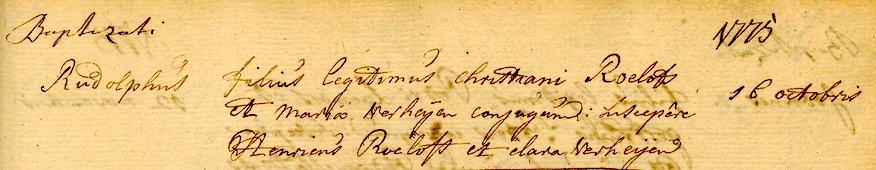 Baptizati 1775
Rudolphus filius legitimus christiani Roelofs 16 octobris
et maria Verheijen conjugum: susceperè
Henricus Roelofs et clara Verheijen